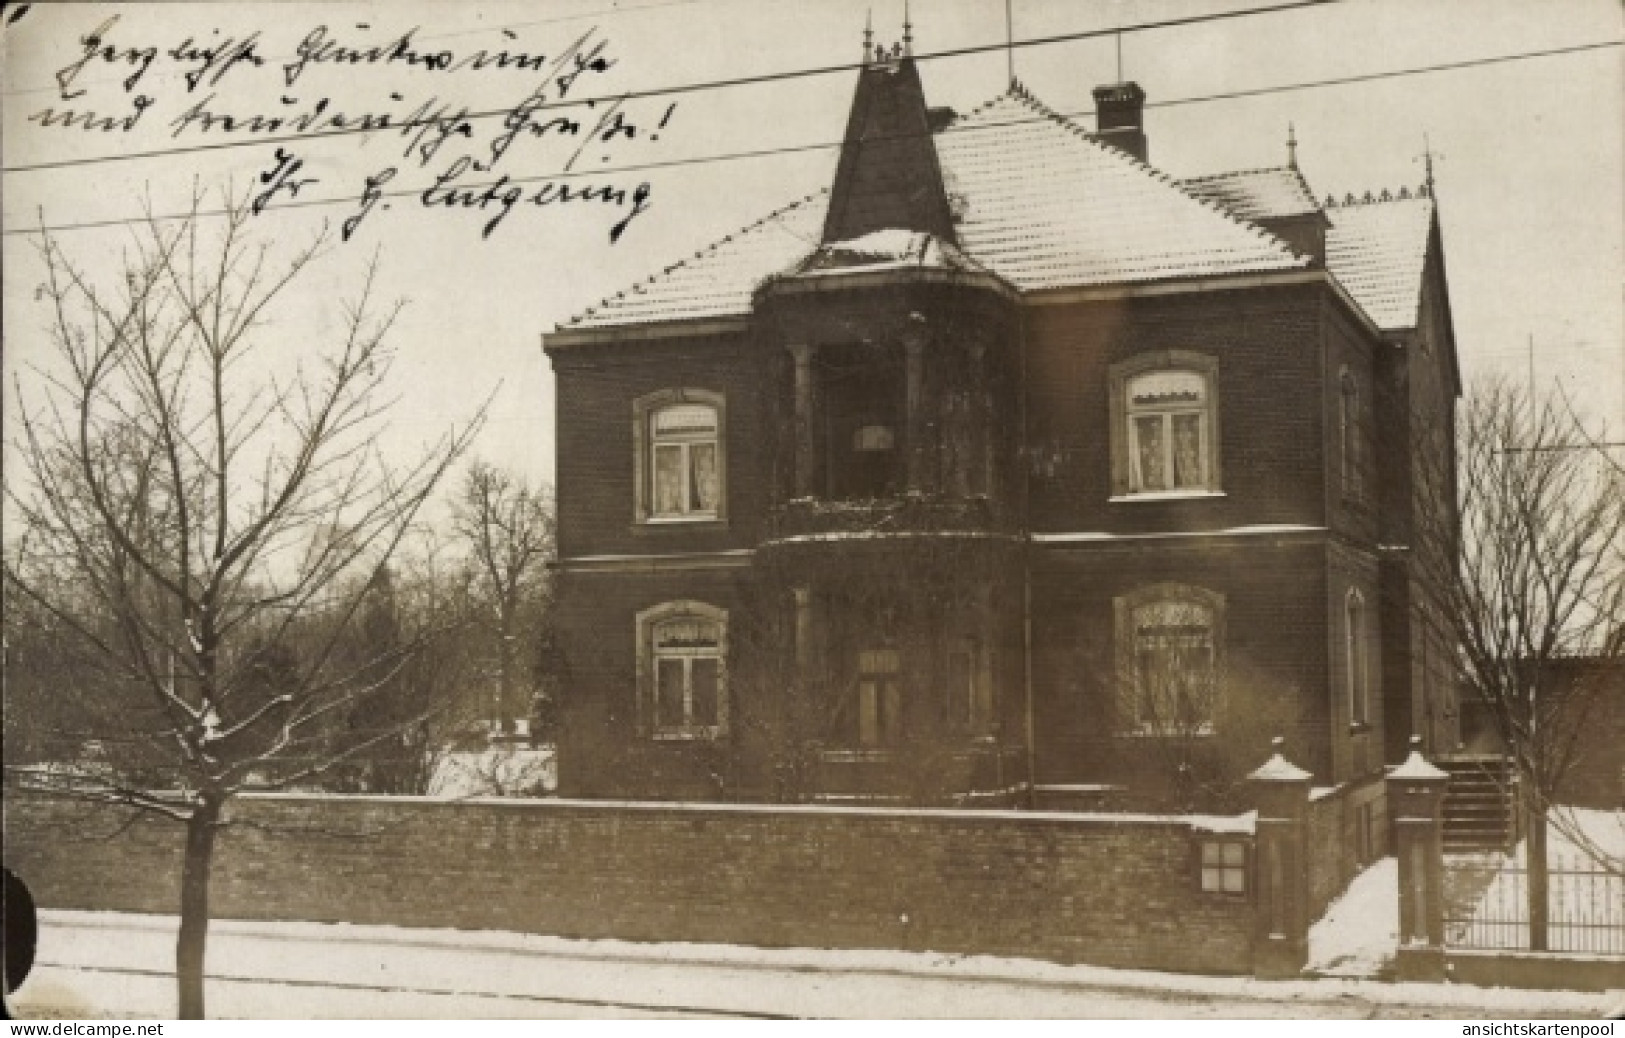 Herzlichste Glückwünsche
und treudeutsche Grüße!
Ihr H. Lütgering
delcampe.net
ansichtskartenpool